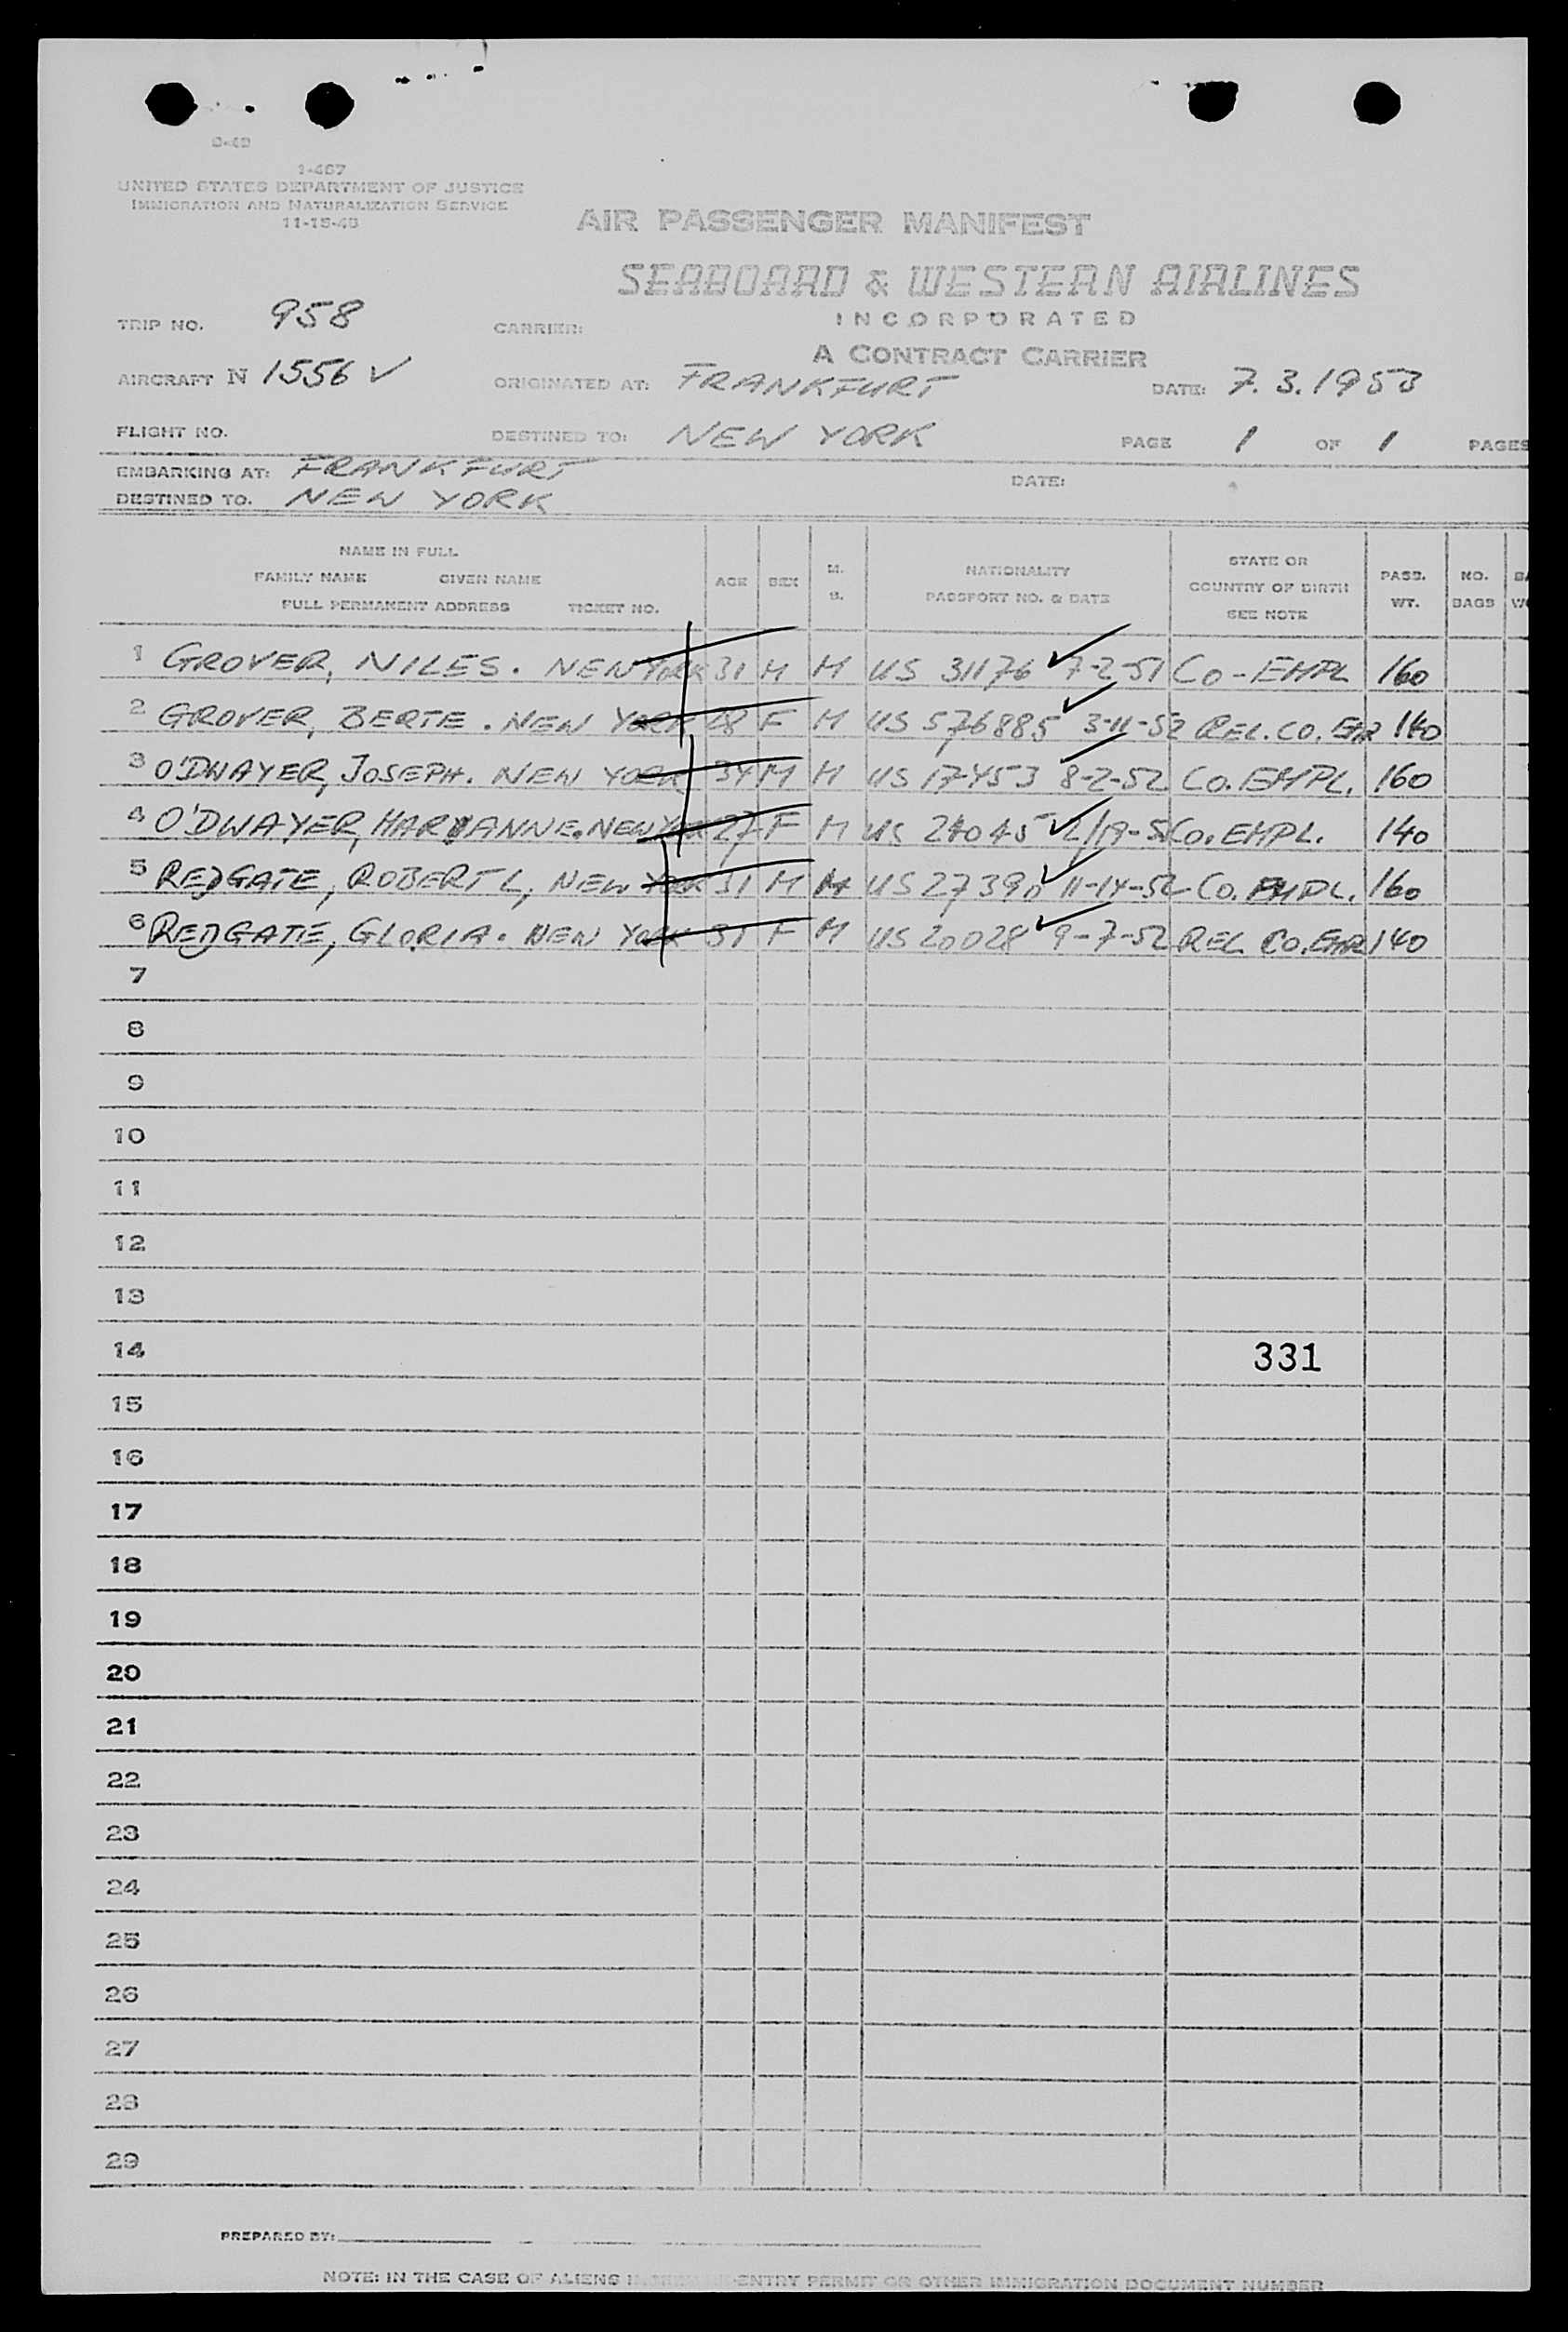 I-467
UNITED STATES DEPARTMENT OF JUSTICE
IMMIGRATION AND NATURALIZATION SERVICE
AIR PASSENGER MANIFEST
SEABOARD & WESTERN AIRLINES
INCORPORATED
A CONTRACT CARRIER
TRIP NO. 958 CARRIER:
AIRCRAFT N 1556 V ORIGINATED AT: FRANKFURT DATE: 7.3.1953
FLIGHT NO. DESTINED TO: NEW YORK PAGE 1 OF 1 PAGES
EMBARKING AT: FRANKFURT DATE:
DESTINED TO. NEW YORK
NAME IN FULL
FAMILY NAME GIVEN NAME
FULL PERMANENT ADDRESS TICKET NO.
AGE SEX M. S.
NATIONALITY
PASSPORT NO. & DATE
STATE OR
COUNTRY OF BIRTH
SEE NOTE
PASS. WT.
NO. BAGS
1 GROVER, NILES. NEW YORK 31 M M US 31176 7-2-51 CO-EMPL 160
2 GROVER, BERTE. NEW YORK 28 F M US 576885 3-11-52 REL. CO. 140
3 O'DWAYER, JOSEPH. NEW YORK 34 M M US 17453 8-2-52 CO. EMPL. 160
4 O'DWAYER, MARYANNE. NEW YORK 27 F M US CO. EMPL. 140
5 REDGATE, ROBERT L, NEW YORK 31 M M US 27390 11-14-52 CO. EMPL. 160
6 REDGATE, GLORIA. NEW YORK 31 F M US 20028 9-7-52 REL CO. 140
7
8
9
10
11
12
13
14 331
15
16
17
18
19
20
21
22
23
24
25
26
27
28
29
PREPARED BY:
NOTE: IN THE CASE OF ALIENS ENTRY PERMIT OR OTHER IMMIGRATION DOCUMENT NUMBER